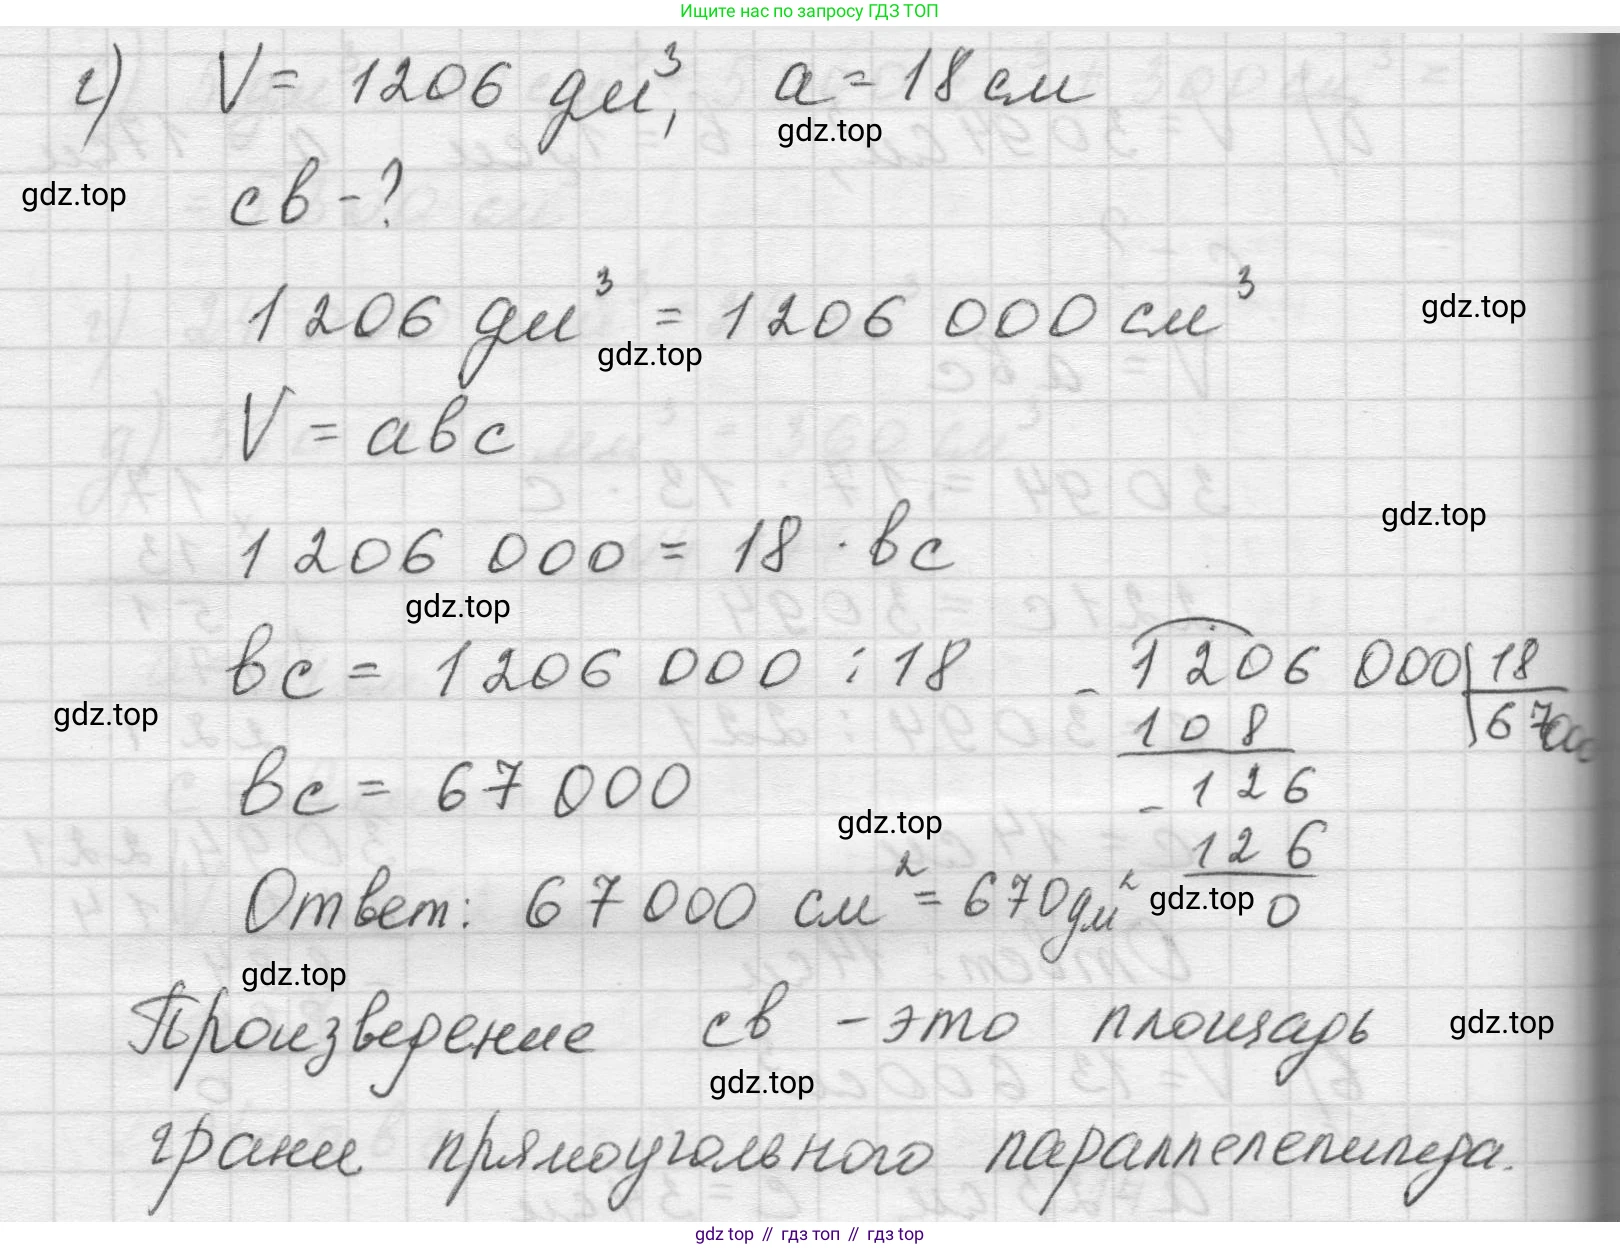 Ищите нас по запросу ГДЗ ТОП
г) V = 1206 дм³, a = 18 см
gdz.top
gdz.top
св - ?
1206 дм³ = 1206 000 см³
gdz.top
gdz.top
V = авс
gdz.top
1206 000 = 18 · вс
gdz.top
вс = 1206 000 : 18
1206 000 | 18
gdz.top
- 108
67000
вс = 67 000
- 126
gdz.top
126
Ответ: 67 000 см² = 670 дм²
gdz.top
0
gdz.top
Произведение св - это площадь
gdz.top
gdz.top
грани прямоугольного параллелепипеда.
gdz top // гдз топ // гдз top